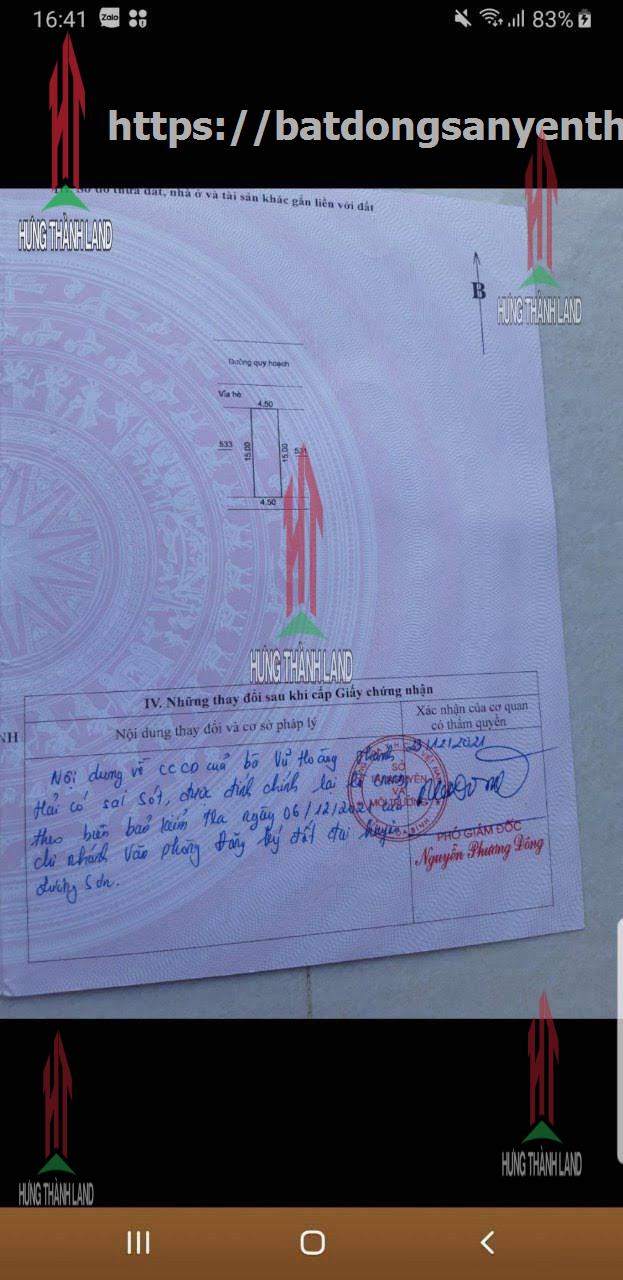 16:41
Zalo
83%
https://batdongsanyenth
III. Sơ đồ thửa đất, nhà ở và tài sản khác gắn liền với đất
HƯNG THÀNH LAND
HƯNG THÀNH LAND
B
Đường quy hoạch
Vỉa hè
4.50
533
15.00
15.00
531
4.50
HƯNG THÀNH LAND
IV. Những thay đổi sau khi cấp Giấy chứng nhận
NH
Nội dung thay đổi và cơ sở pháp lý
Xác nhận của cơ quan
có thẩm quyền
Nội dung về CCCD của bà Vũ Hoàng
Hải có sai sót, được đính chính lại
theo biên bản kiểm tra ngày 06/12/2021 của
chi nhánh Văn phòng Đăng ký đất đai huyện
Lương Sơn.
23/12/2021
SỞ
TÀI NGUYÊN
VÀ
MÔI TRƯỜNG
PHÓ GIÁM ĐỐC
Nguyễn Phương Đông
HƯNG THÀNH LAND
HƯNG THÀNH LAND